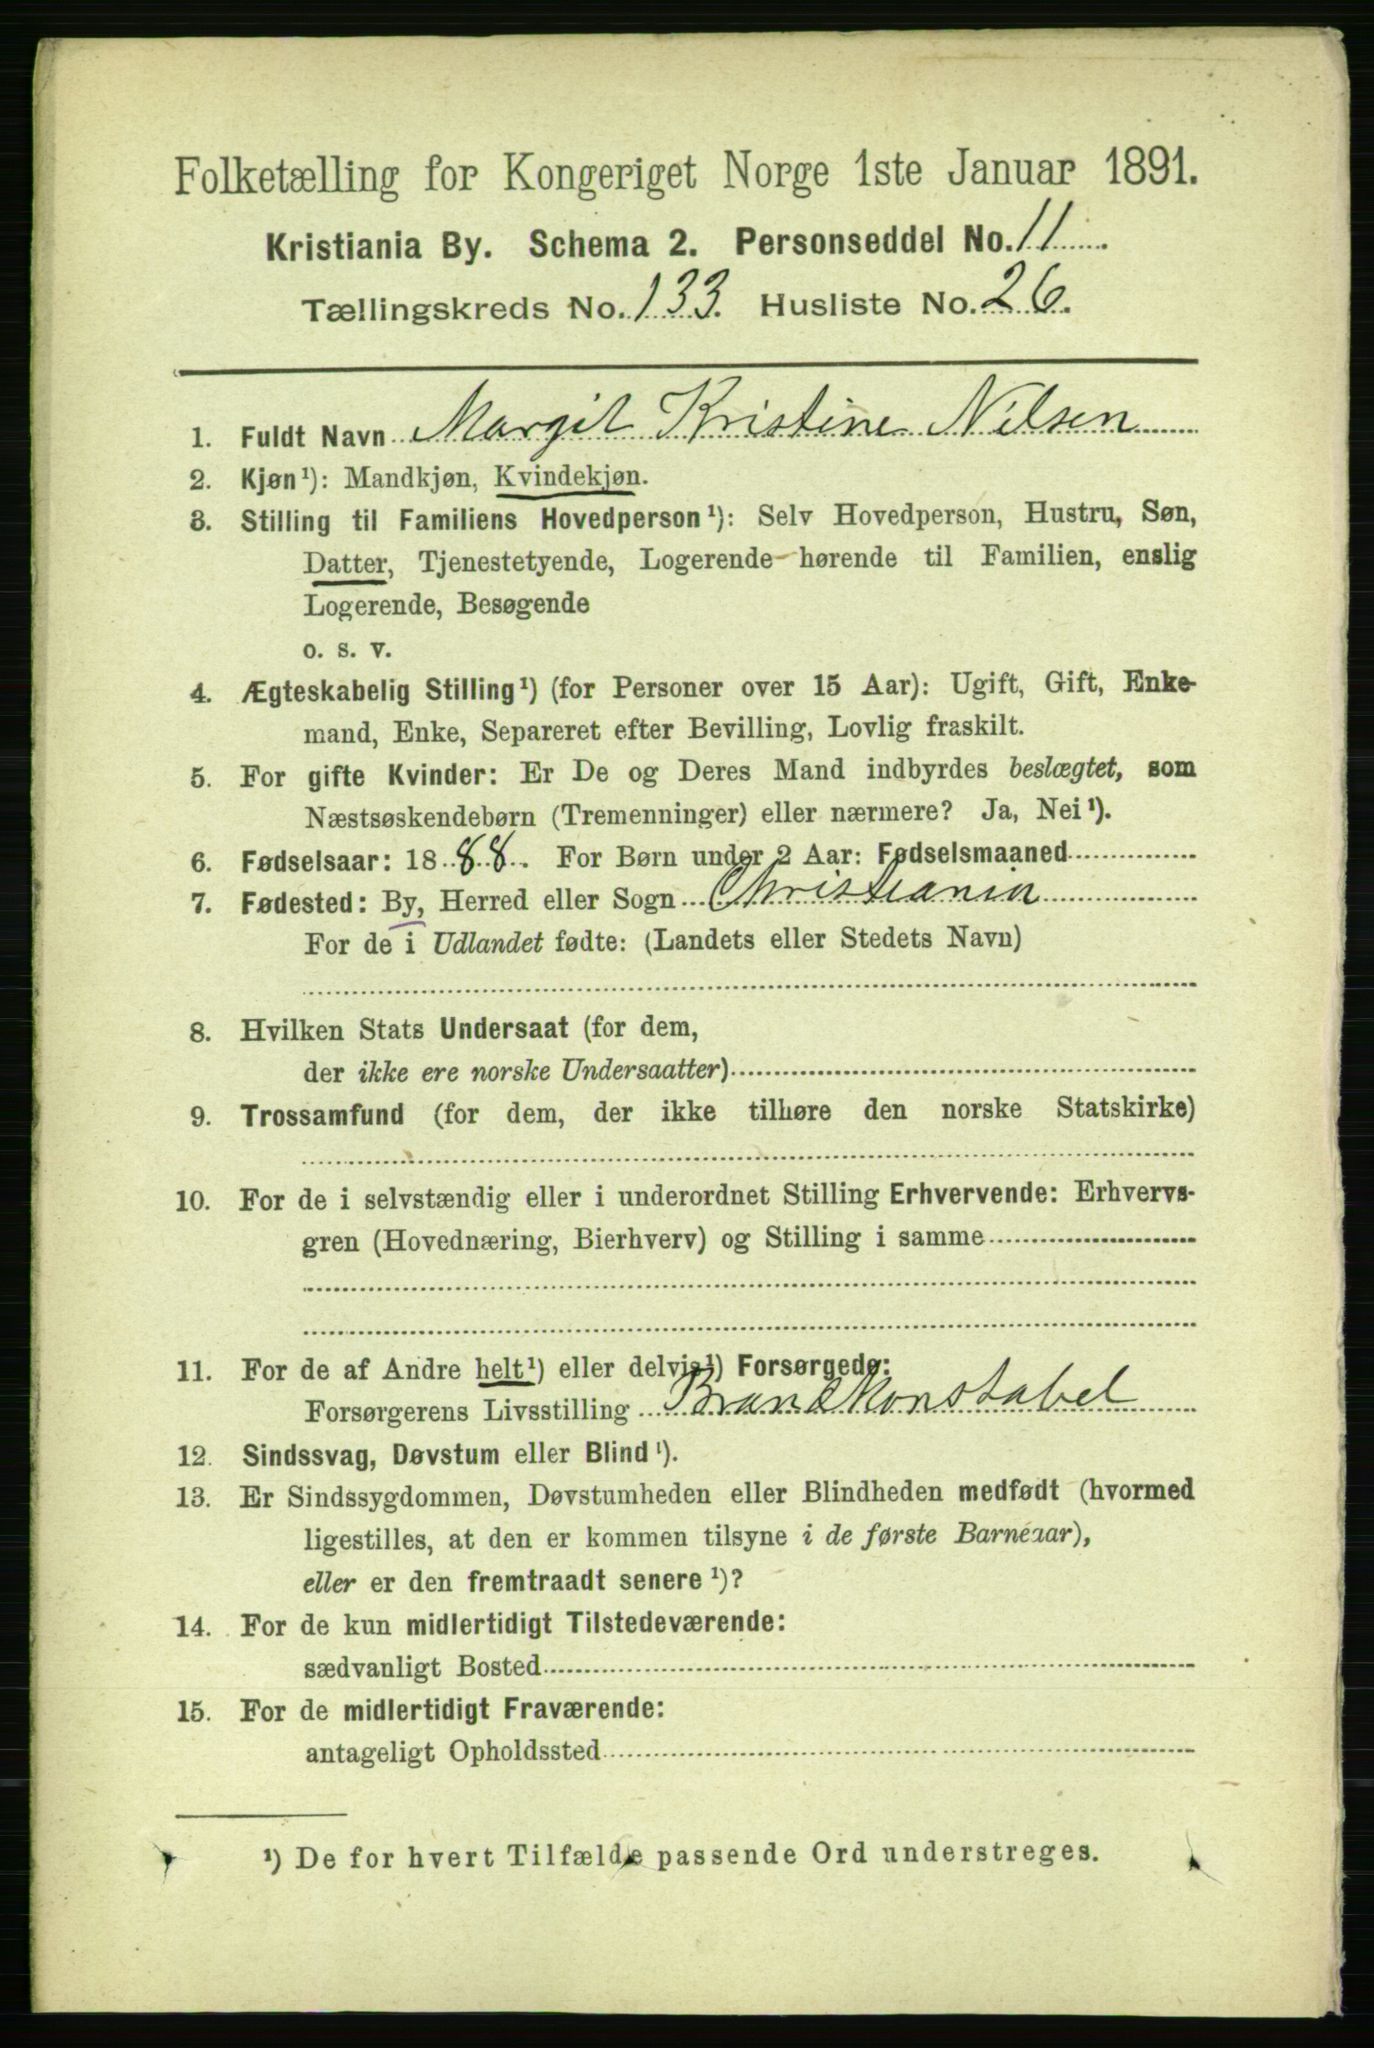 Folketælling for Kongeriget Norge 1ste Januar 1891.
Kristiania By. Schema 2. Personseddel No. 11
Tællingskreds No. 133. Husliste No. 26.
1. Fuldt Navn Margit Kristine Nilsen
2. Kjøn¹): Mandkjøn, Kvindekjøn.
3. Stilling til Familiens Hovedperson¹): Selv Hovedperson, Hustru, Søn,
Datter, Tjenestetyende, Logerende hørende til Familien, enslig
Logerende, Besøgende
o. s. v.
4. Ægteskabelig Stilling¹) (for Personer over 15 Aar): Ugift, Gift, Enke-
mand, Enke, Separeret efter Bevilling, Lovlig fraskilt.
5. For gifte Kvinder: Er De og Deres Mand indbyrdes beslægtet, som
Næstsøskendebørn (Tremenninger) eller nærmere? Ja, Nei¹).
6. Fødselsaar: 1888. For Børn under 2 Aar: Fødselsmaaned
7. Fødested: By, Herred eller Sogn Christiania
For de i Udlandet fødte: (Landets eller Stedets Navn)
8. Hvilken Stats Undersaat (for dem,
der ikke ere norske Undersaatter)
9. Trossamfund (for dem, der ikke tilhøre den norske Statskirke)
10. For de i selvstændig eller i underordnet Stilling Erhvervende: Erhvervs-
gren (Hovednæring, Bierhverv) og Stilling i samme
11. For de af Andre helt¹) eller delvis¹) Forsørgede:
Forsørgerens Livsstilling Brandkonstabel
12. Sindssvag, Døvstum eller Blind¹).
13. Er Sindssygdommen, Døvstumheden eller Blindheden medfødt (hvormed
ligestilles, at den er kommen tilsyne i de første Barneaar),
eller er den fremtraadt senere¹)?
14. For de kun midlertidigt Tilstedeværende:
sædvanligt Bosted
15. For de midlertidigt Fraværende:
antageligt Opholdssted
¹) De for hvert Tilfælde passende Ord understreges.